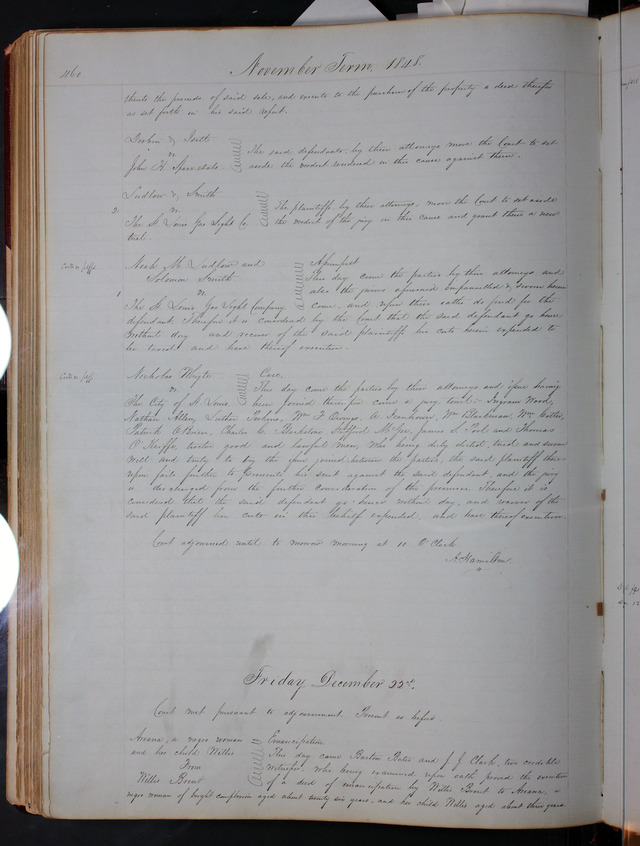 460
November Term, 1848.
thints the proceeds of said sale, and execute to the purchaser of the property a deed therefor
as set forth in his said report.
vs.
John H.
The said defendants, by their attorneys move the Court to set
aside the verdict rendered in this cause against them.
Ludlow & Smith
2 vs.
The St. Louis Gas Light Co.
The plaintiffs by their attorneys, move the Court to set aside
the verdict of the jury in this cause and grant them a new
trial.
Noah M. Ludlow and
Solomon Smith
1 vs.
The St. Louis Gas Light Company
Assumpsit
This day come the parties by their attorneys and
also the jurors aforesaid empannelled & sworn herein
come, and upon their oaths do find for the
defendant. Therefore it is considered by the Court that the said defendant go hence
without day and recover of the said plaintiffs his costs herein expended to
be taxed and have thereof execution.
Nicholas Whyte
vs.
The City of St. Louis
Case,
This day come the parties by their attorneys and issue having
been joined therefore came a jury, to wit:
Nathan Allen, Luther Wm. F. A. Wm. Blackman, Wm.
Patrick O'Brien, Charles C. McGee, James S. and Thomas
O'Keiffe, twelve good and lawful men, who being duly elected, tried and sworn
well and truly to try the issue joined between the parties, the said plaintiff there
upon fails further to prosecute his suit against the said defendant, and the jury
is discharged from the further consideration of the premises. Therefore it is
considered that the said defendant go hence without day, and recover of the
said plaintiff her costs in this behalf expended, and have thereof execution.
Court adjourned until to morrow morning at 10 O'Clock
A. Hamilton
Friday December 22d.
Court met pursuant to adjournment. Present as before.
Ariana, a negro woman
and her child Willis
From
Willis Brent
Emancipation
This day came Barton Bates and J. J. Clark, two credible
witnesses, who being examined upon oath proved the execution
of a deed of emancipation by Willis Brent to Ariana, a
negro woman of bright complexion aged about twenty six years, and her child Willis aged about three years